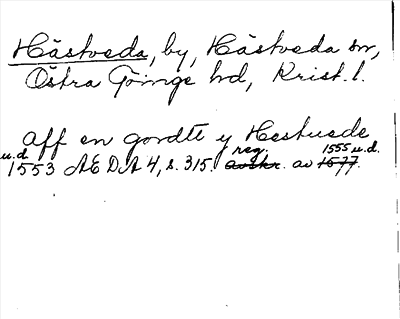 Hästveda, by, Hästveda sn,
Östra Göinge hd, Krist. l.
aff en gordtt y Hestuede
u.d. reg. 1555 u.d.
1553 ÆDA 4, s. 315. avskr. av 1577.